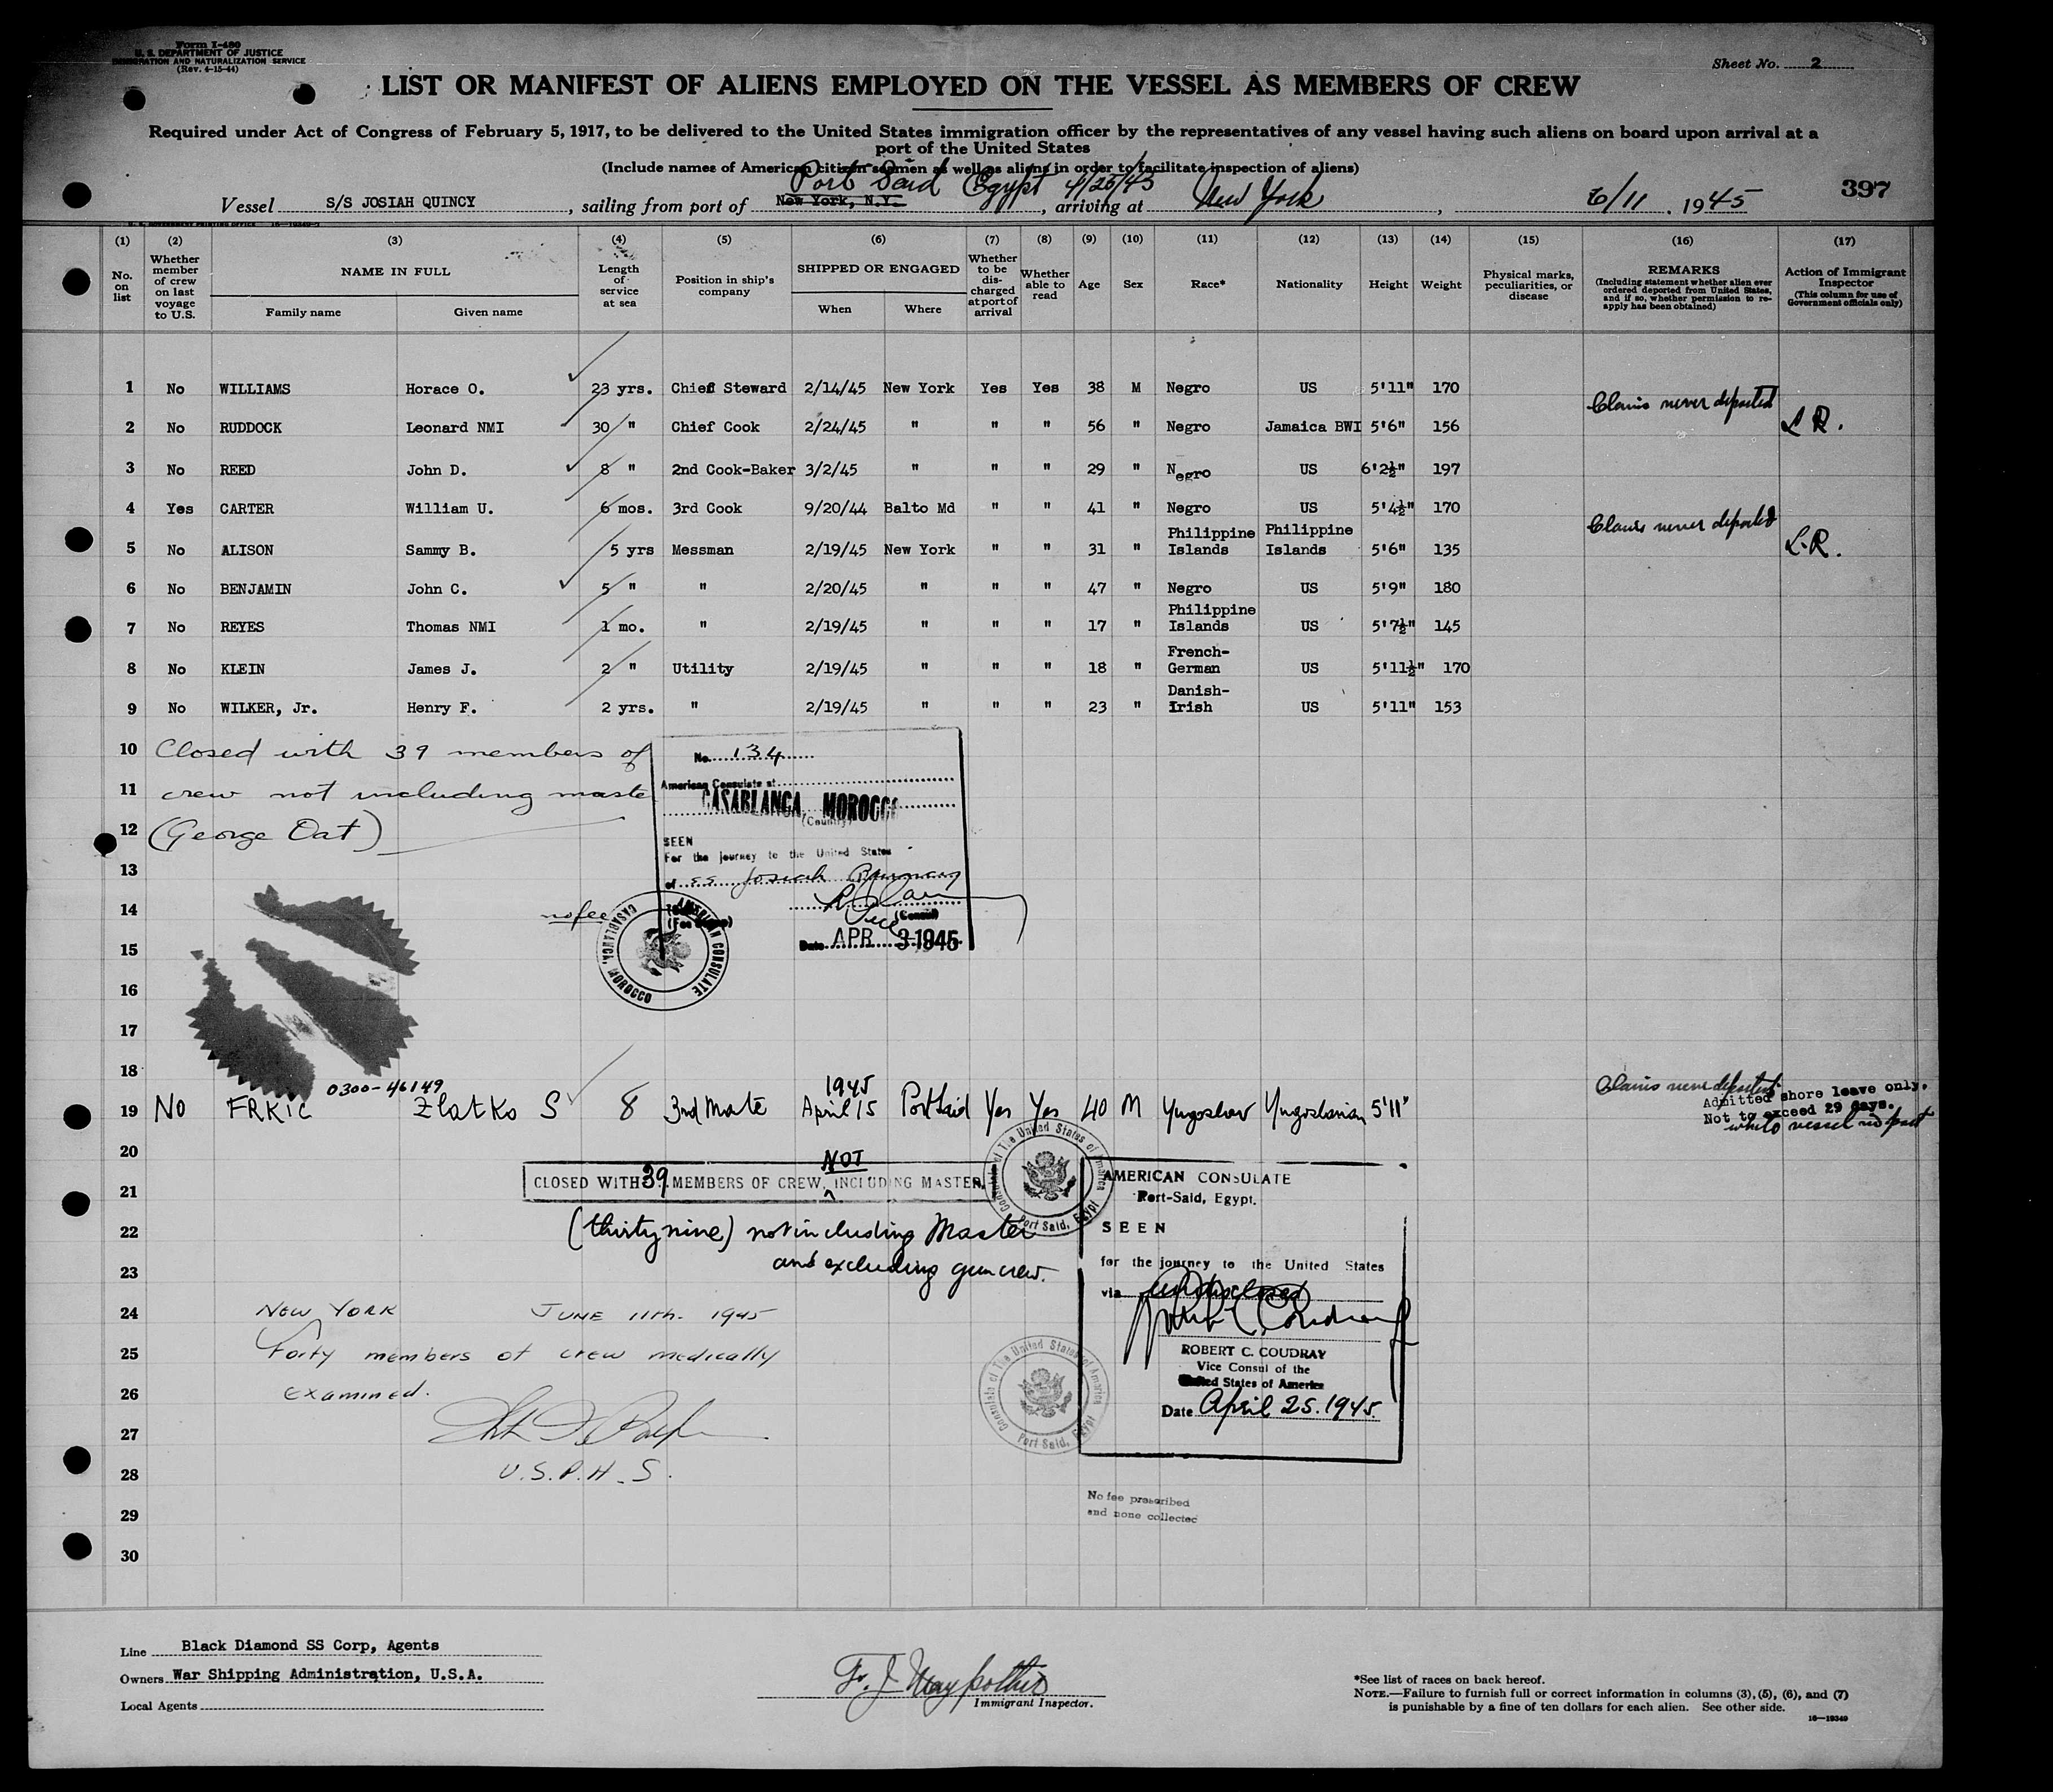 Form I-480
U. S. DEPARTMENT OF JUSTICE
IMMIGRATION AND NATURALIZATION SERVICE
(Rev. 4-15-44)
Sheet No. 2
LIST OR MANIFEST OF ALIENS EMPLOYED ON THE VESSEL AS MEMBERS OF CREW
Required under Act of Congress of February 5, 1917, to be delivered to the United States immigration officer by the representatives of any vessel having such aliens on board upon arrival at a
port of the United States
(Include names of American citizen seamen as well as aliens in order to facilitate inspection of aliens)
Port Said Egypt 4/25/45
397
Vessel S/S JOSIAH QUINCY, sailing from port of New York, N.Y., arriving at New York, 6/11, 1945
(1) (2) (3) (4) (5) (6) (7) (8) (9) (10) (11) (12) (13) (14) (15) (16) (17)
No. on list
Whether member of crew on last voyage to U.S.
NAME IN FULL
Family name Given name
Length of service at sea
Position in ship's company
SHIPPED OR ENGAGED
When Where
Whether to be discharged at port of arrival
Whether able to read
Age
Sex
Race*
Nationality
Height
Weight
Physical marks, peculiarities, or disease
REMARKS
(Including statement whether alien ever ordered deported from United States, and if so, whether permission to reapply has been obtained)
Action of Immigrant Inspector
(This column for use of Government officials only)
1 No WILLIAMS Horace O. 23 yrs. Chief Steward 2/14/45 New York Yes Yes 38 M Negro US 5'11" 170
2 No RUDDOCK Leonard NMI 30 " Chief Cook 2/24/45 " " " 56 " Negro Jamaica BWI 5'6" 156 Claims never deported L.R.
3 No REED John D. 8 " 2nd Cook-Baker 3/2/45 " " " 29 " Negro US 6'2½" 197
4 Yes CARTER William U. 6 mos. 3rd Cook 9/20/44 Balto Md " " 41 " Negro US 5'4½" 170
5 No ALISON Sammy B. 5 yrs Messman 2/19/45 New York " " 31 " Philippine Islands Philippine Islands 5'6" 135 Claims never deported L.R.
6 No BENJAMIN John C. 5 " " 2/20/45 " " " 47 " Negro US 5'9" 180
7 No REYES Thomas NMI 1 mo. " 2/19/45 " " " 17 " Philippine Islands US 5'7½" 145
8 No KLEIN James J. 2 " Utility 2/19/45 " " " 18 " French-German US 5'11½" 170
9 No WILKER, Jr. Henry F. 2 yrs. " 2/19/45 " " " 23 " Danish-Irish US 5'11" 153
10 Closed with 39 members of
11 crew not including maste
12 (George Oat)
No. 134
American Consulate at
CASABLANCA, MOROCCO
(Country)
SEEN
For the journey to the United States
of SS Josiah Quincy
no fee
(Consul)
Date APR 3-1945
AMERICAN CONSULATE
CASABLANCA, MOROCCO
13
14
15
16
17
18
0300-46149
19 No FRKIC Zlatko S 8 3rd Mate 1945 April 15 Port Said Yes Yes 40 M Yugoslav Yugoslavian 5'11" Claims never deported
Admitted shore leave only.
Not to exceed 29 days.
while vessel in port
20
NOT
21 CLOSED WITH 39 MEMBERS OF CREW, INCLUDING MASTER.
22 (thirty nine) not including Master
23 and excluding gun crew.
Consulate of The United States of America
Port Said, Egypt
AMERICAN CONSULATE
Port-Said, Egypt.
SEEN
for the journey to the United States
via undisclosed
Robert C. Coudray
ROBERT C. COUDRAY
Vice Consul of the
United States of America
Date April 25. 1945.
Consulate of The United States of America
Port Said, Egypt
24 NEW YORK JUNE 11th. 1945
25 Forty members of crew medically
26 examined.
27
28 U.S.P.H.S.
No fee prescribed
and none collected
29
30
Line Black Diamond SS Corp, Agents
Owners War Shipping Administration, U.S.A.
Local Agents
Immigrant Inspector.
*See list of races on back hereof.
NOTE.—Failure to furnish full or correct information in columns (3), (5), (6), and (7)
is punishable by a fine of ten dollars for each alien. See other side.
16—19349